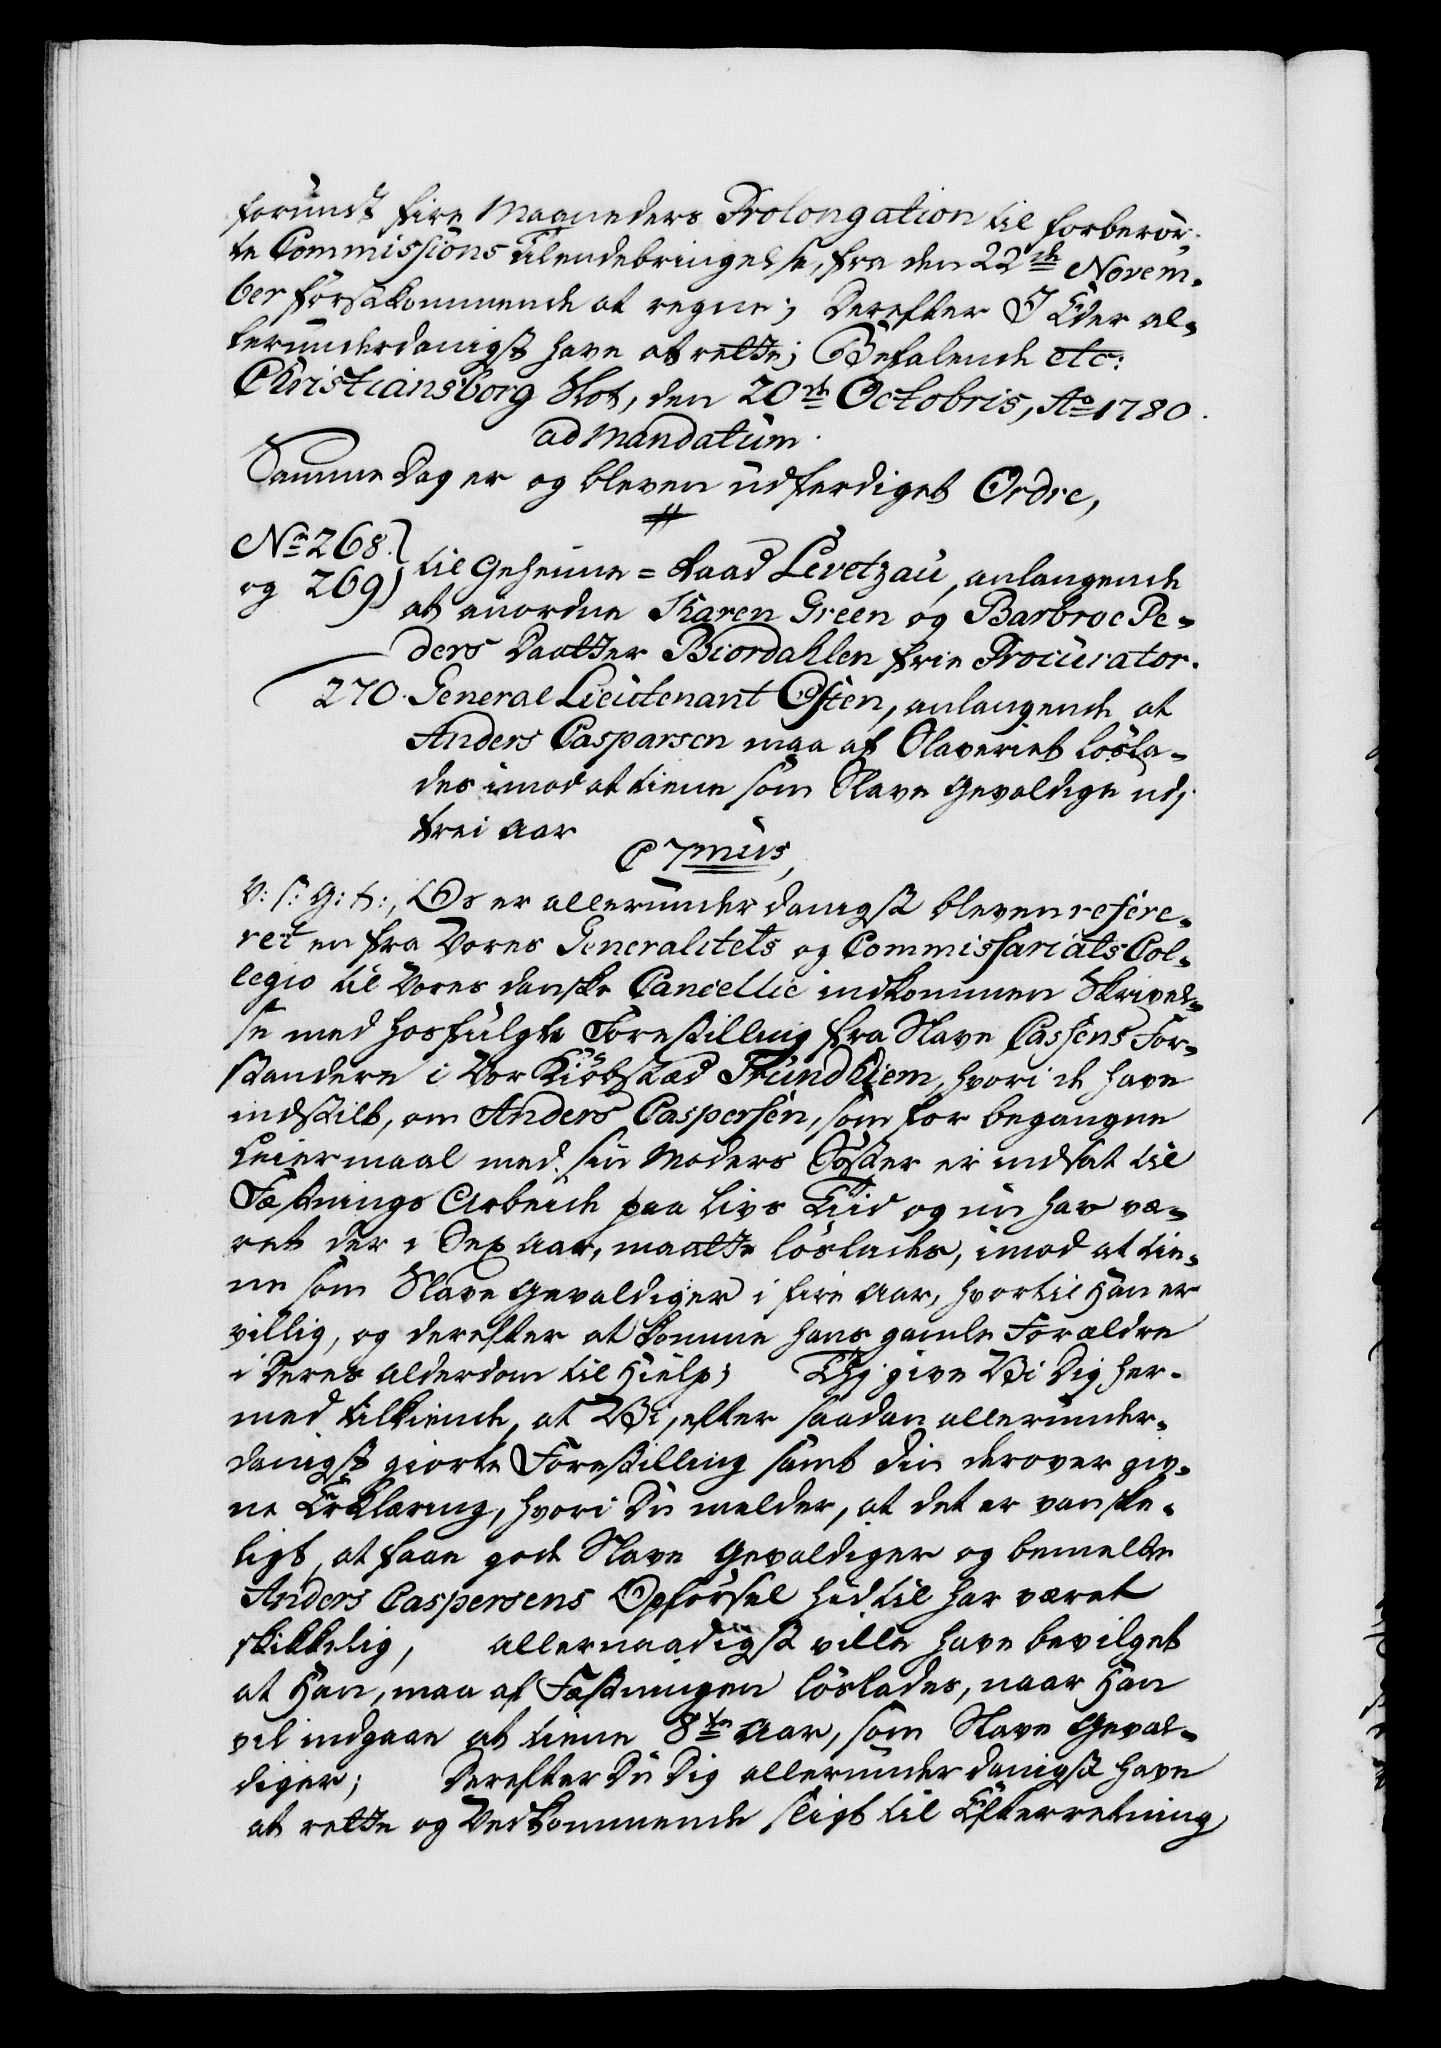 forundt fire Maaneders Prolongation til forberör-
te Commissions Tilendebringelse, fra den 22de Novem-
ber förstkommende at regne; Derefter I Eder al-
lerunderdanigst have at rette; Befalende etc:
Christiansborg Slot, den 20de Octobris, Ao 1780.
ad Mandatum.
Samme Dag er og bleven udferdiget Ordre,
No 268.
og 269) til Geheime=Raad Levetzau, anlangende
at anordne Karen Green og Barbroe Pe-
ders Daatter Biordahlen frie Procurator.
270. General Lieutenant Osten, anlangende at
Anders Casparsen maa af Slaveriet lösla-
des imod at tiene som Slave Gevaldige udj
trei Aar
C 7mus,
V: s: G: t:, Os er allerunderdanigst bleven refere-
ret en fra Vores Generalitets og Commissariats Col-
legio til Vores danske Cancellie indkommen Skrivel-
se med hosfulgte Forestilling fra Slave Cassens For-
standere i Vor Kiöbstad Trundhiem, hvori de have
indstilt, om Anders Caspersen, som for begangne
Leiermaal med sin Moders Söster er indsat til
Fæstnings Arbeide paa Livs Tiid og nu har væ-
ret der i Sex Aar, maatte löslades, imod at tie-
ne som Slave Gevaldiger i fire Aar, hvortil Han er
villig, og derefter at komme hans gamle Forældre
i Deres Alderdom til Hielp; Thj give Vi Dig her-
med tilkiende, at Vi, efter saadan allerunder-
danigst giorte Forestilling samt Din derover giv-
ne Erklæring, hvori Du melder, at det er vanske-
ligt, at faae gode Slave Gevaldiger og bemelte
Anders Caspersens Opförsel hidtil har været
skikkelig, allernaadigst ville have bevilget
at Han, maa af Fæstningen löslades, naar Han
vil indgaae at tiene 8te Aar, som Slave Geval-
diger; Derefter Du Dig allerunderdanigst have
at rette og Vedkommende sligt til Efterretning